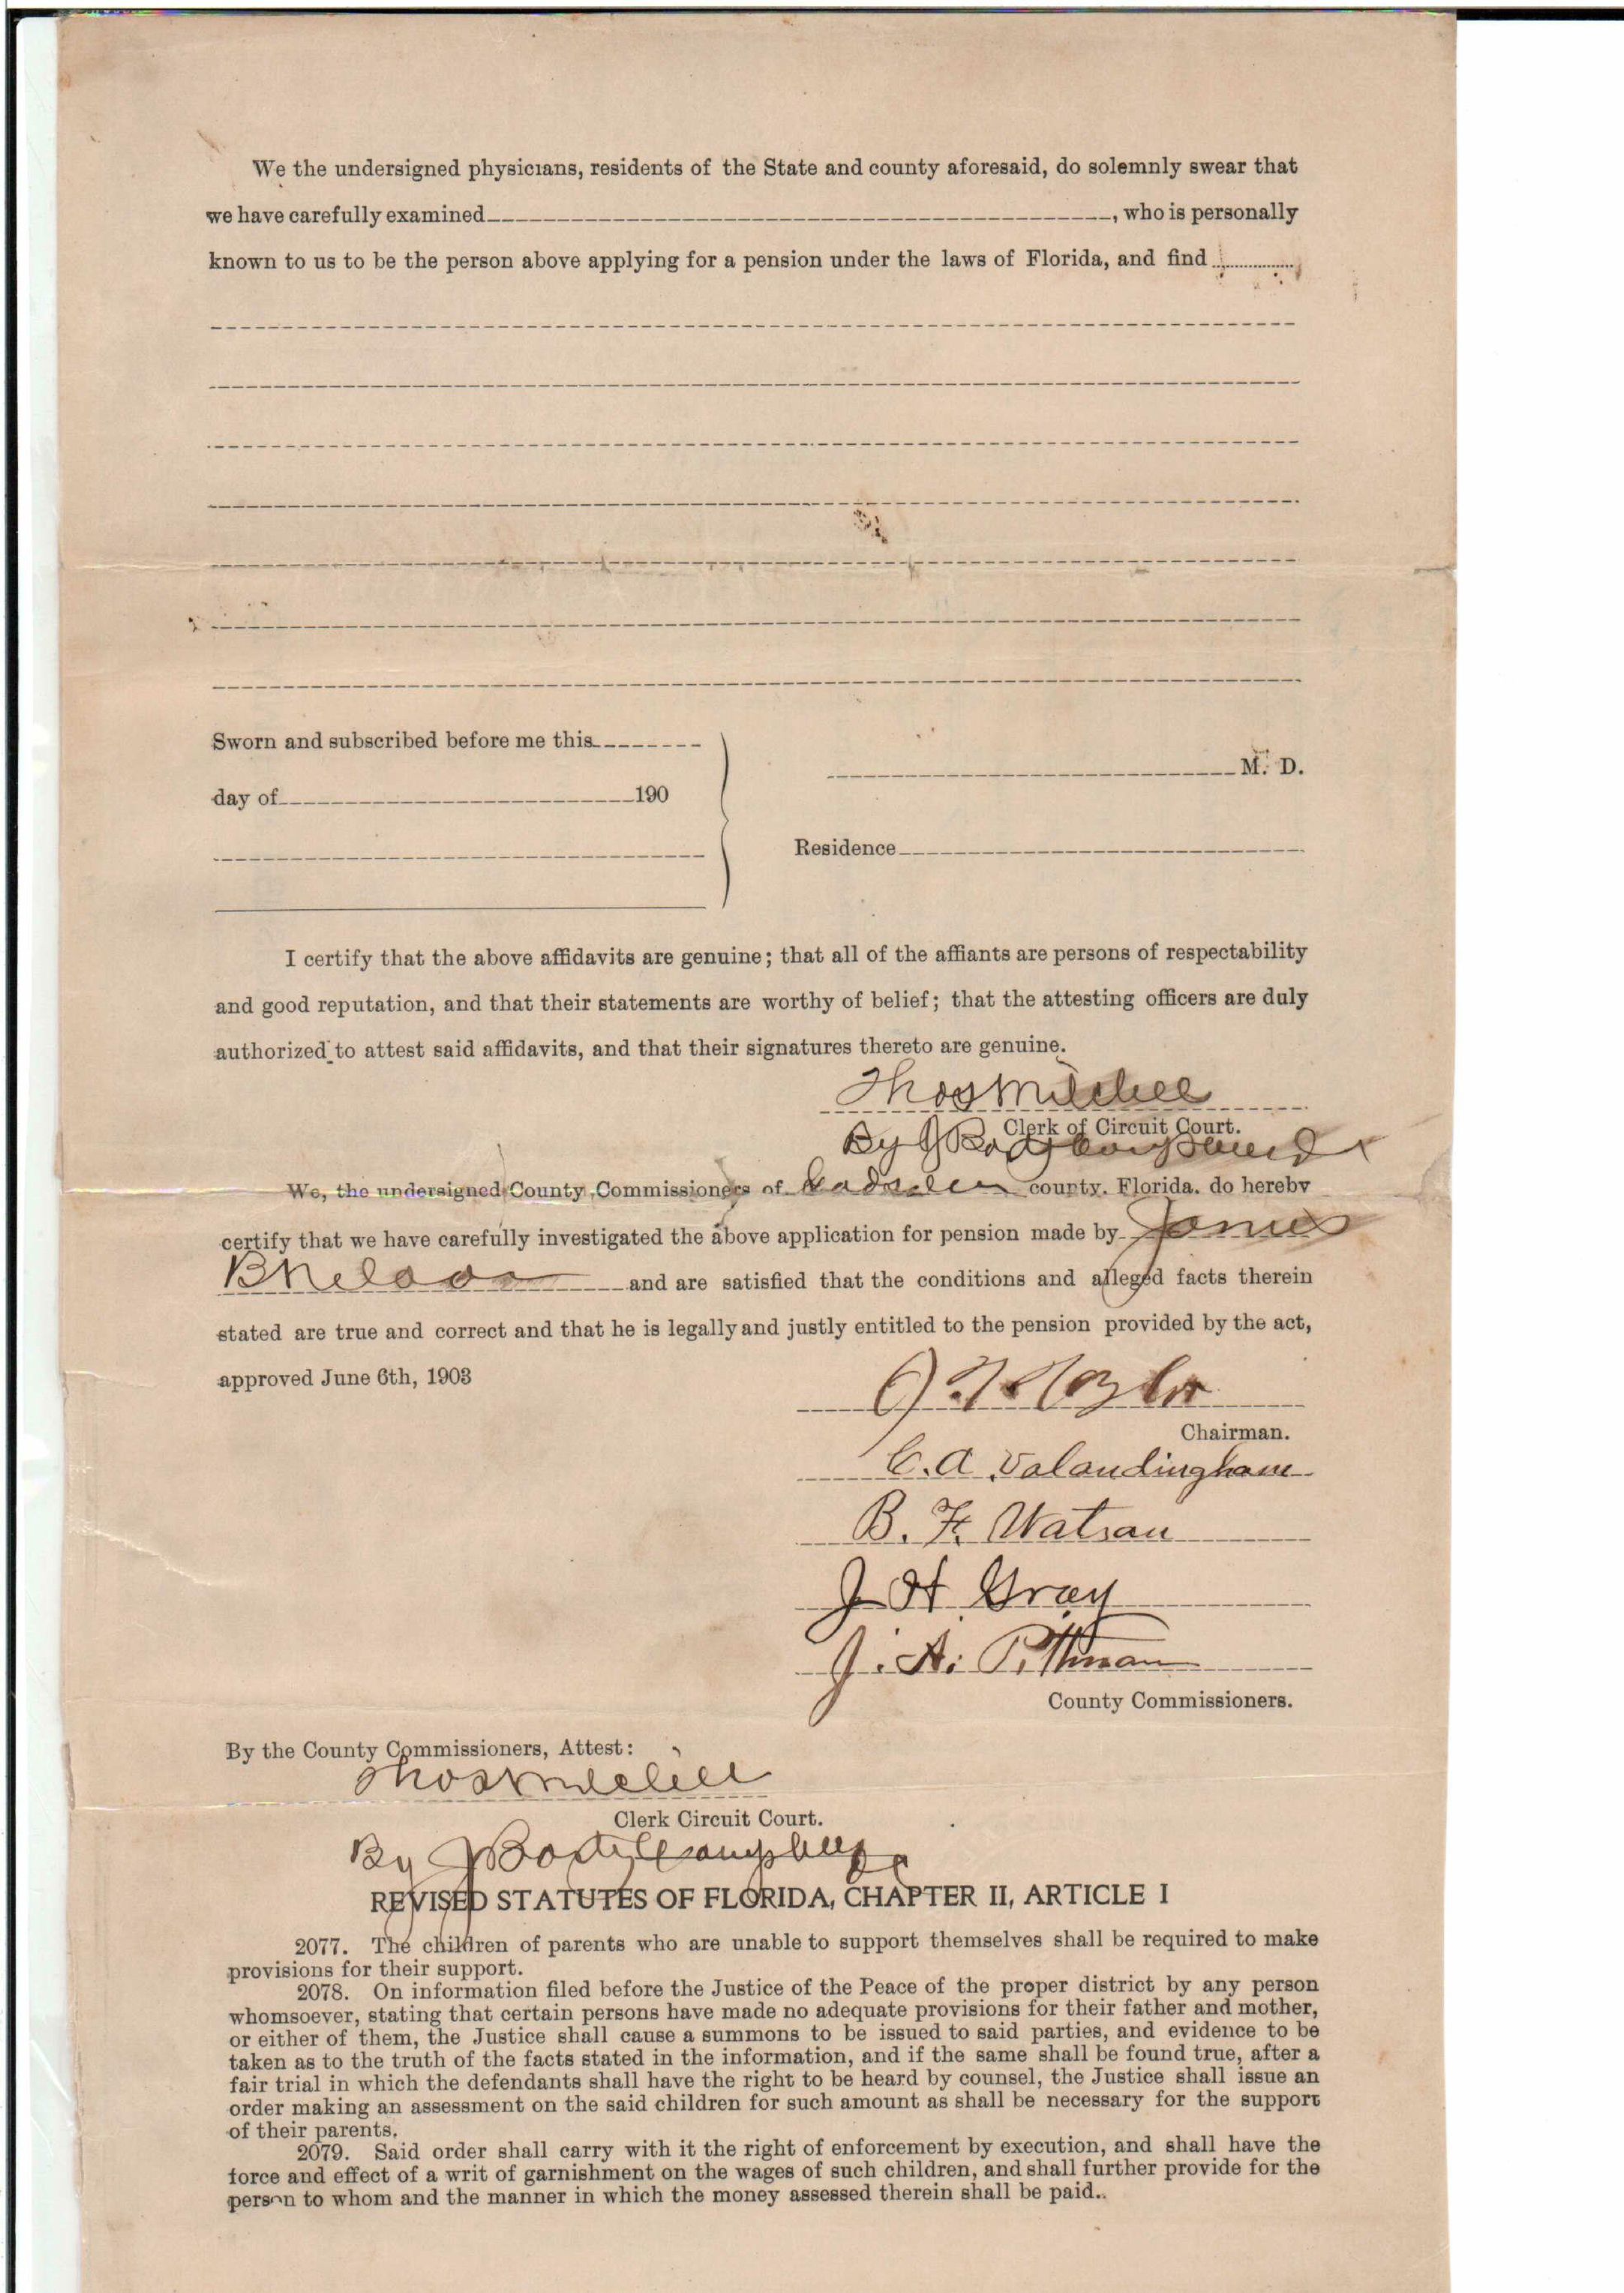 We the undersigned physicians, residents of the State and county aforesaid, do solemnly swear that
we have carefully examined , who is personally
known to us to be the person above applying for a pension under the laws of Florida, and find
Sworn and subscribed before me this
day of 190
M. D.
Residence
I certify that the above affidavits are genuine; that all of the affiants are persons of respectability
and good reputation, and that their statements are worthy of belief; that the attesting officers are duly
authorized to attest said affidavits, and that their signatures thereto are genuine.
Thos Mitchell
Clerk of Circuit Court.
By J
We, the undersigned County Commissioners of Gadsden county, Florida, do hereby
certify that we have carefully investigated the above application for pension made by James
B and are satisfied that the conditions and alleged facts therein
stated are true and correct and that he is legally and justly entitled to the pension provided by the act,
approved June 6th, 1903
Chairman.
C. A. Valandingham
B. F. Watson
J H Gray
J. A. Pittman
County Commissioners.
By the County Commissioners, Attest:
Thos Mitchell
Clerk Circuit Court.
By J Campbell
REVISED STATUTES OF FLORIDA, CHAPTER II, ARTICLE I
2077. The children of parents who are unable to support themselves shall be required to make
provisions for their support.
2078. On information filed before the Justice of the Peace of the proper district by any person
whomsoever, stating that certain persons have made no adequate provisions for their father and mother,
or either of them, the Justice shall cause a summons to be issued to said parties, and evidence to be
taken as to the truth of the facts stated in the information, and if the same shall be found true, after a
fair trial in which the defendants shall have the right to be heard by counsel, the Justice shall issue an
order making an assessment on the said children for such amount as shall be necessary for the support
of their parents.
2079. Said order shall carry with it the right of enforcement by execution, and shall have the
force and effect of a writ of garnishment on the wages of such children, and shall further provide for the
person to whom and the manner in which the money assessed therein shall be paid.